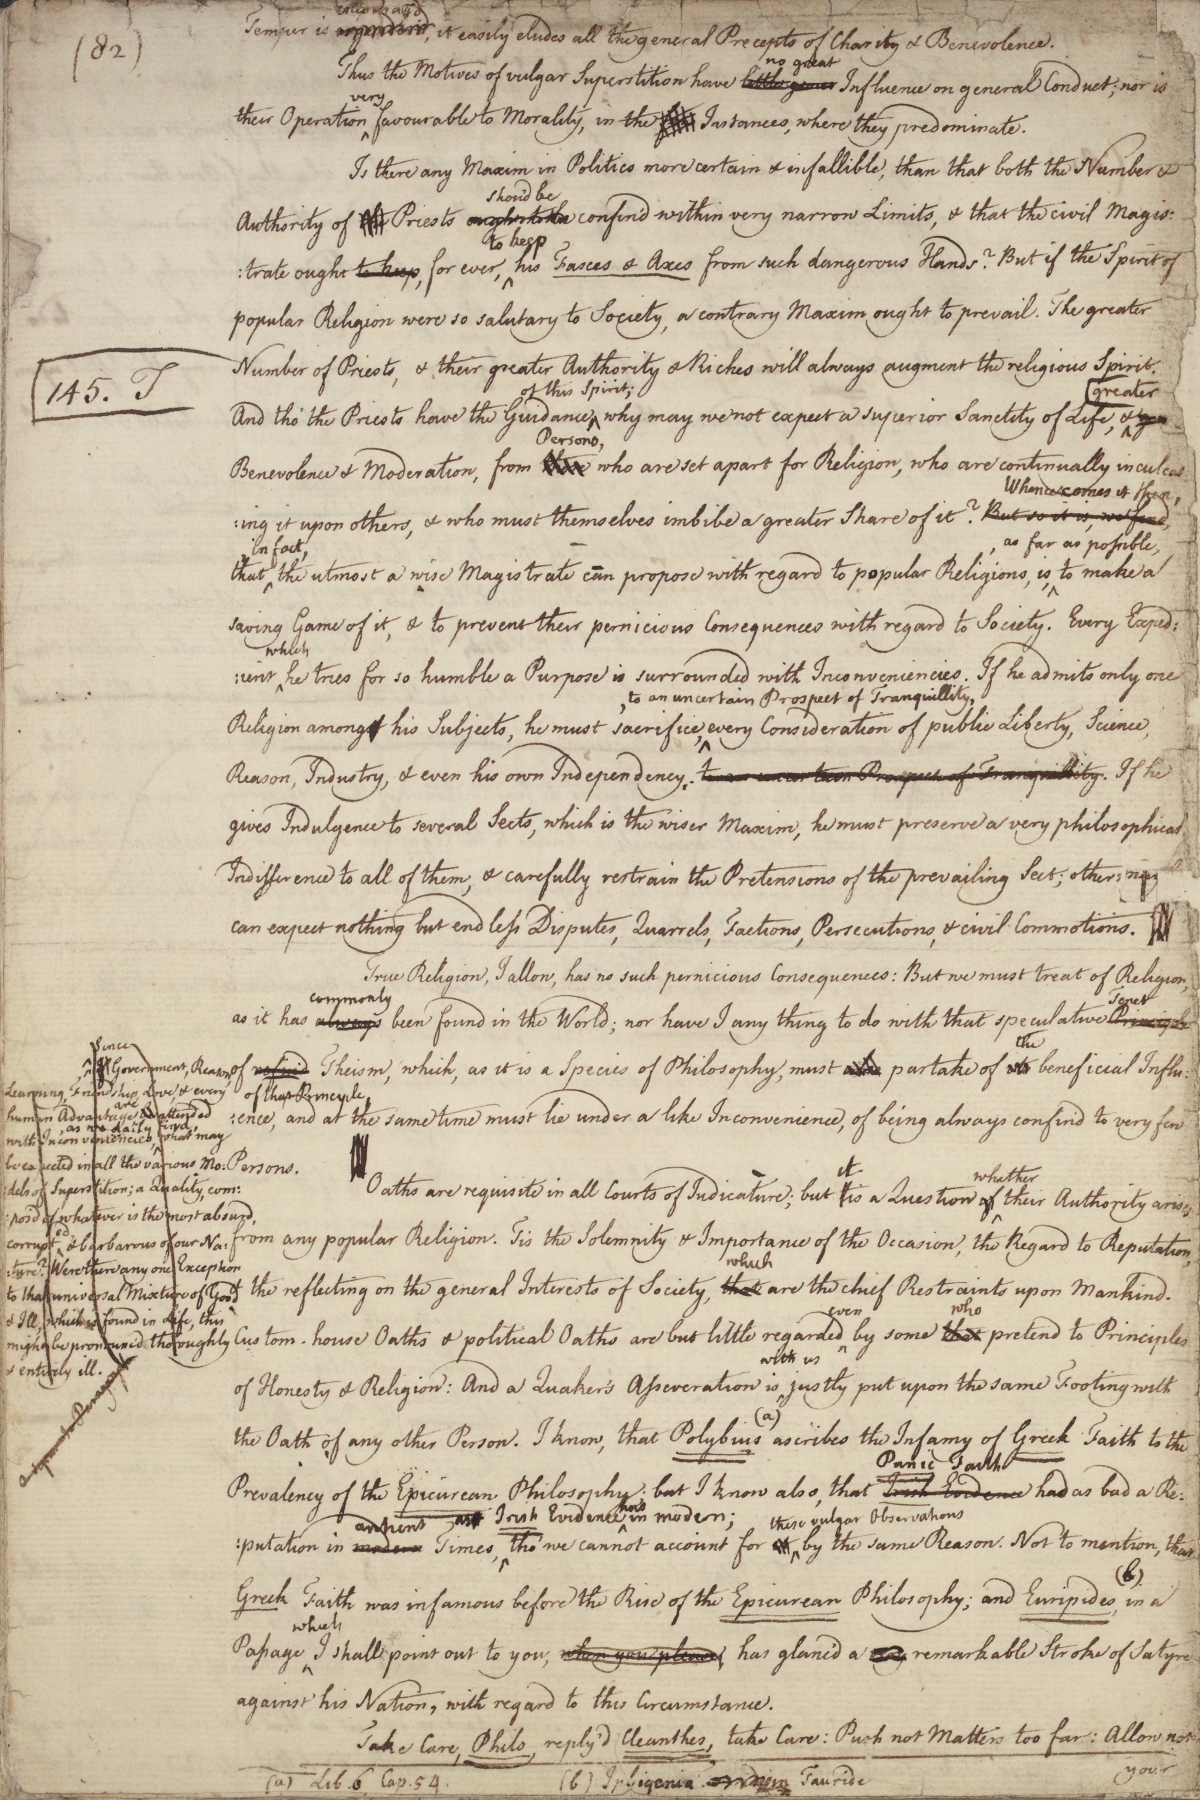 (82)
encourag'd
Temper is engender'd, it easily eludes all the general Precepts of Charity & Benevolence.
no great
Thus the Motives of vulgar Superstition have little great Influence on general Conduct; nor is
very
their Operation favourable to Morality, in the Instances, where they predominate.
Is there any Maxim in Politics more certain & infallible, than that both the Number &
shoud be
Authority of Priests ought to be confin'd within very narrow Limits, & that the civil Magis:
to keep
:trate ought to keep, for ever, his Fasces & Axes from such dangerous Hands? But if the Spirit of
popular Religion were so salutary to Society, a contrary Maxim ought to prevail. The greater
145. T
Number of Priests, & their greater Authority & Riches will always augment the religious Spirit.
of this Spirit; greater
And tho' the Priests have the Guidance, why may we not expect a superior Sanctity of Life, &
Persons,
Benevolence & Moderation, from who are set apart for Religion, who are continually inculcat
Whence comes it then,
:ing it upon others, & who must themselves imbibe a greater Share of it? But so it is, we find,
in fact, , as far as possible,
that the utmost a wise Magistrate can propose with regard to popular Religions, is to make a
saving Game of it, & to prevent their pernicious Consequences with regard to Society. Every Exped:
which
:ient he tries for so humble a Purpose is surrounded with Inconveniencies. If he admits only one
, to an uncertain Prospect of Tranquillity,
Religion among his Subjects, he must sacrifice, every Consideration of public Liberty, Science,
Reason, Industry, & even his own Independency. to an uncertain Prospect of Tranquillity. If he
gives Indulgence to several Sects, which is the wiser Maxim, he must preserve a very philosophical
Indifference to all of them, & carefully restrain the Pretensions of the prevailing Sect; other:
can expect nothing but endless Disputes, Quarrels, Factions, Persecutions, & civil Commotions.
True Religion, I allow, has no such pernicious Consequences: But we must treat of Religion,
commonly Tenet
as it has always been found in the World; nor have I any thing to do with that speculative Principle
the
of refin'd Theism, which, as it is a Species of Philosophy, must partake of beneficial Influ:
of that Principle,
:ence, and at the same time must lie under a like Inconvenience, of being always confin'd to very few
Persons.
Since
Government, Reason,
Learning, Friendship, Love & every
are
human Advantage attended
, as we daily find,
with Inconveniencies, what may
be expected in all the various Mo:
:dels of Superstition; a Quality, com:
:pos'd of whatever is the most absurd,
corrupted & barbarous of our Na:
:ture? Were there any one Exception
to that universal Mixture of Good
& Ill, which is found in Life, this
might be pronounced thoroughly
& entirely ill.
it whether
Oaths are requisite in all Courts of Judicature; but tis a Question if their Authority arises
from any popular Religion. Tis the Solemnity & Importance of the Occasion, the Regard to Reputation,
which
& the reflecting on the general Interests of Society, that are the chief Restraints upon Mankind.
even who
Custom-house Oaths & political Oaths are but little regarded by some that pretend to Principles
with us
of Honesty & Religion: And a Quaker's Asseveration is justly put upon the same Footing with
(a)
the Oath of any other Person. I know, that Polybius ascribes the Infamy of Greek Faith to the
Punic Faith
Prevalency of the Epicurean Philosophy: but I know also, that Irish Evidence had as bad a Re:
antient as Irish Evidence has in modern; these vulgar Observations
:putation in modern Times, tho' we cannot account for by the same Reason. Not to mention, that
(b)
Greek Faith was infamous before the Rise of the Epicurean Philosophy; and Euripides, in a
which
Passage I shall point out to you, when you please, has glanc'd a remarkable Stroke of Satyre
against his Nation, with regard to this Circumstance.
Take Care, Philo, reply'd Cleanthes, take Care: Push not Matters too far: Allow not
your
(a) Lib. 6. Cap. 54. (b) Iphigenia in Tauride